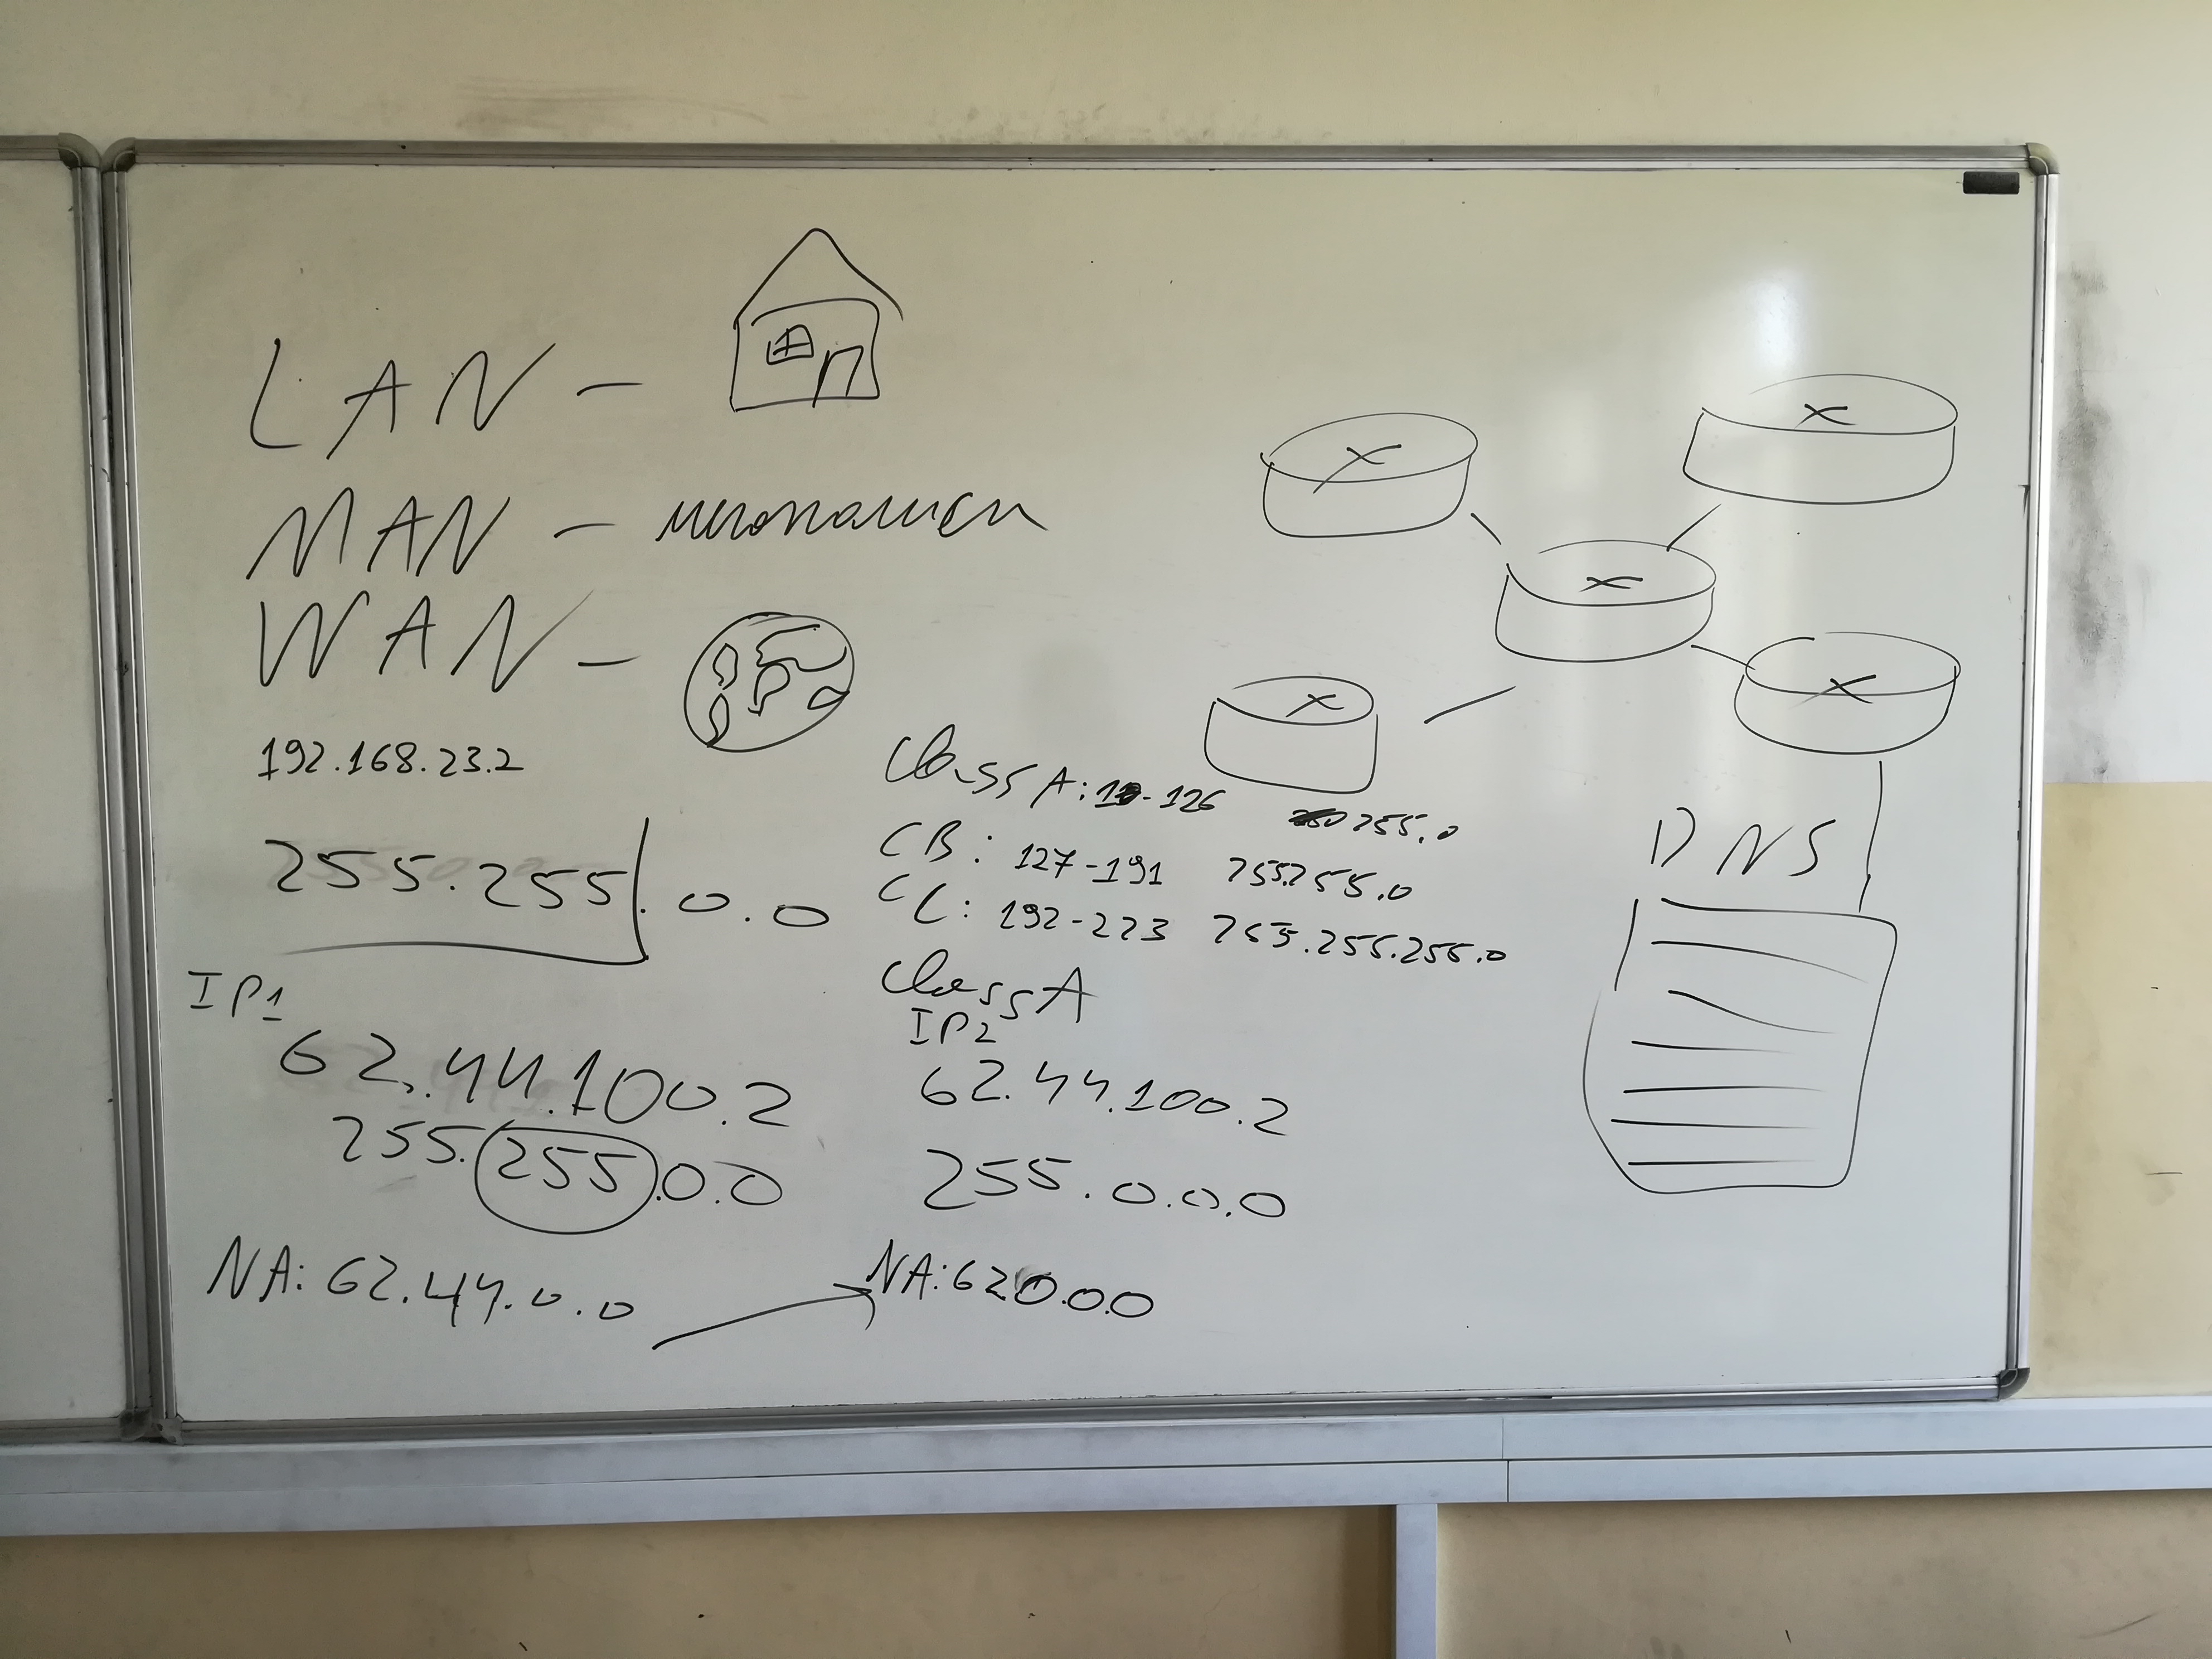 LAN -
MAN -
WAN -
192.168.23.2
255.255.0.0
IP1
62.44.100.2
255.255.0.0
NA: 62.44.0.0
Class A: - 126 255.0
CB: 127-191 255.255.0
CC: 192-223 255.255.255.0
Class A
IP2
62.44.100.2
255.0.0.0
NA: 62.0.0.0
DNS